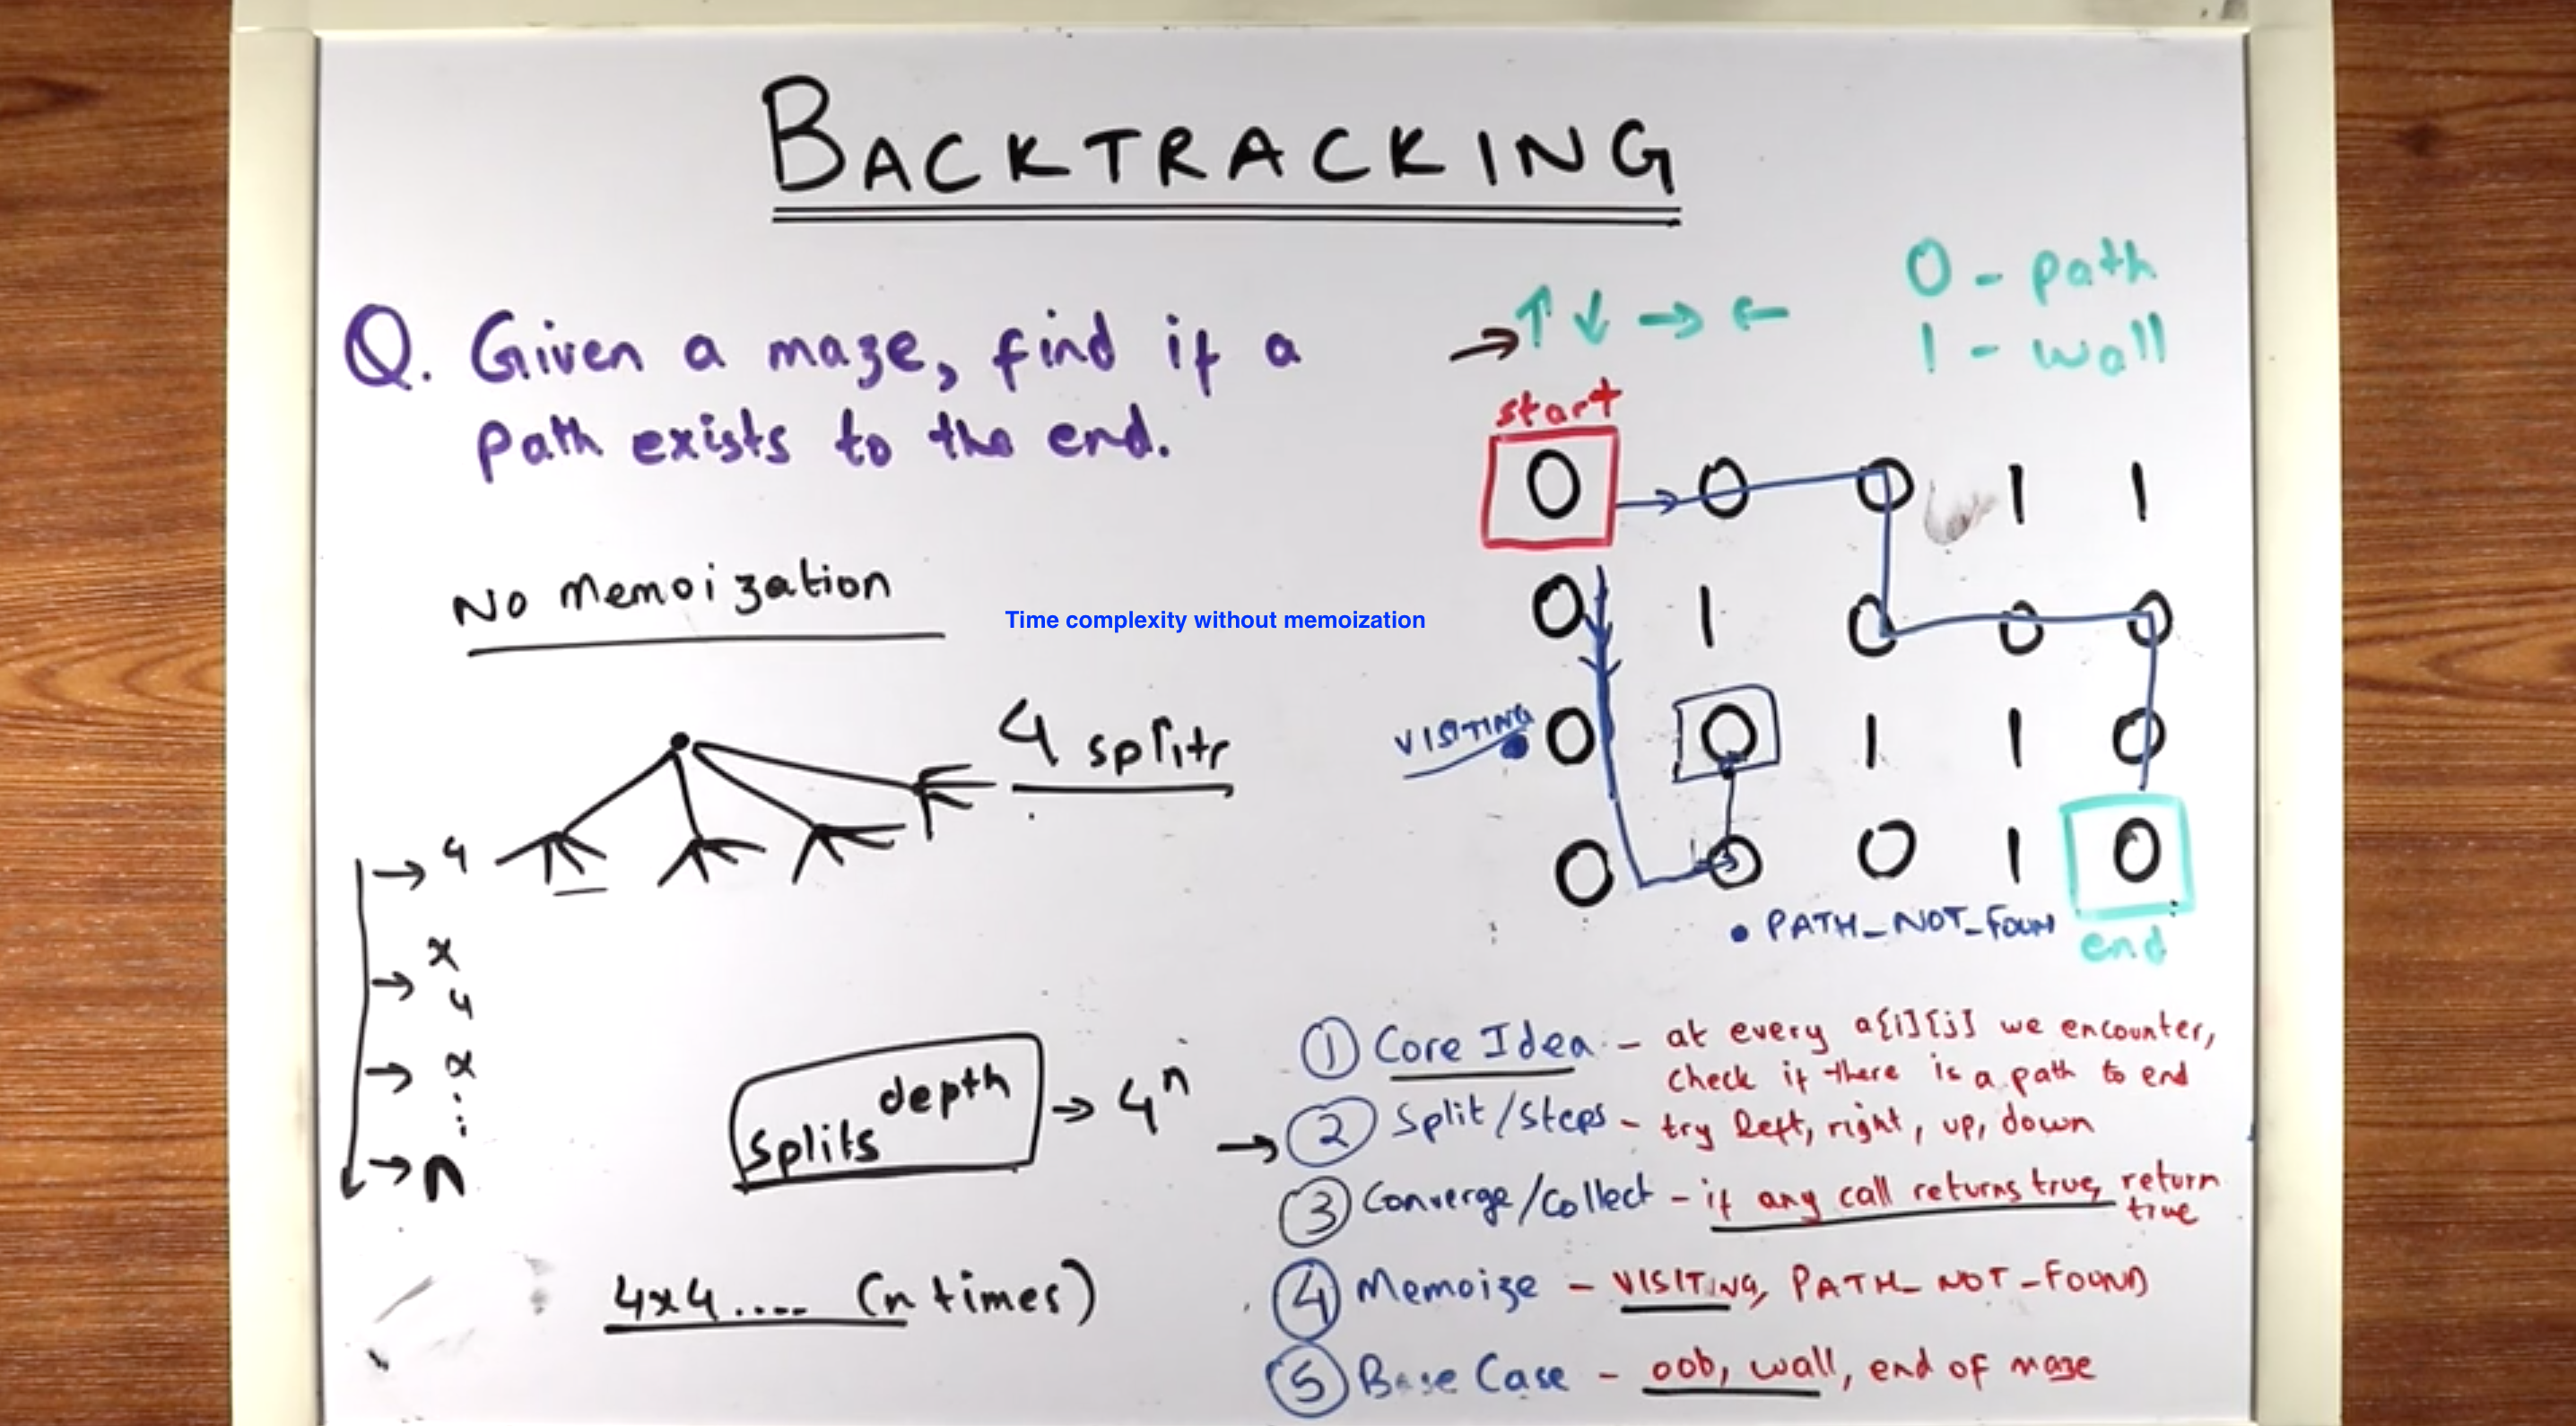 BACKTRACKING
Q. Given a maze, find if a
path exists to the end.
↑ ↓ → ←
0 - path
1 - wall
start
0 0 0 1 1
0 1 0 0 0
VISITING
0 0 1 1 0
0 0 0 1 0
• PATH_NOT_FOUN
end
No memoization
Time complexity without memoization
4 splits
→ 4
x
→ 4
→ x
⋮
→ n
splits^depth → 4^n
4x4.... (n times)
① Core Idea - at every a[i][j] we encounter,
check if there is a path to end
→ ② Split/Steps - try left, right, up, down
③ Converge/Collect - if any call returns true, return
true
④ Memoize - VISITING, PATH_NOT_FOUND
⑤ Base Case - oob, wall, end of maze